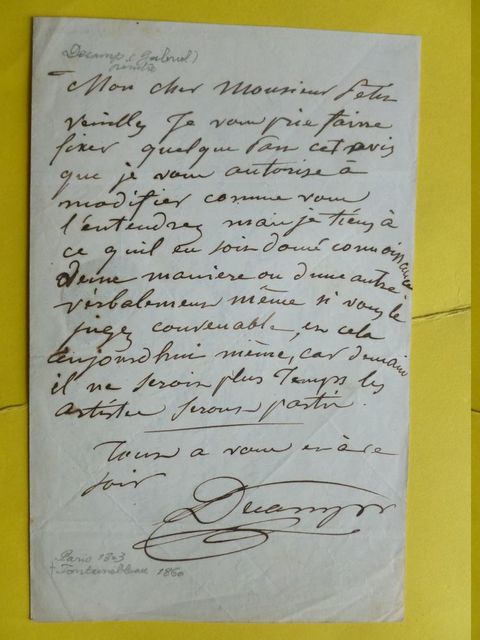 Decamps (Gabriel)
peintre
Mon cher Monsieur Petit
veuillez Je vous prie faire
fixer quelque part cet avis
que je vous autorise à
modifier comme vous
l'entendrez mais je tiens à
ce quil en soit donné connoissance
d'une maniere ou d'une autre
verbalement même si vous le
jugez convenable, en cela
aujourdhui même, car demain
il ne serois plus Temps les
artistes serons partis.
Tous a vous et à ce
soir
Decamps
Paris 1803
† Fontainebleau 1860